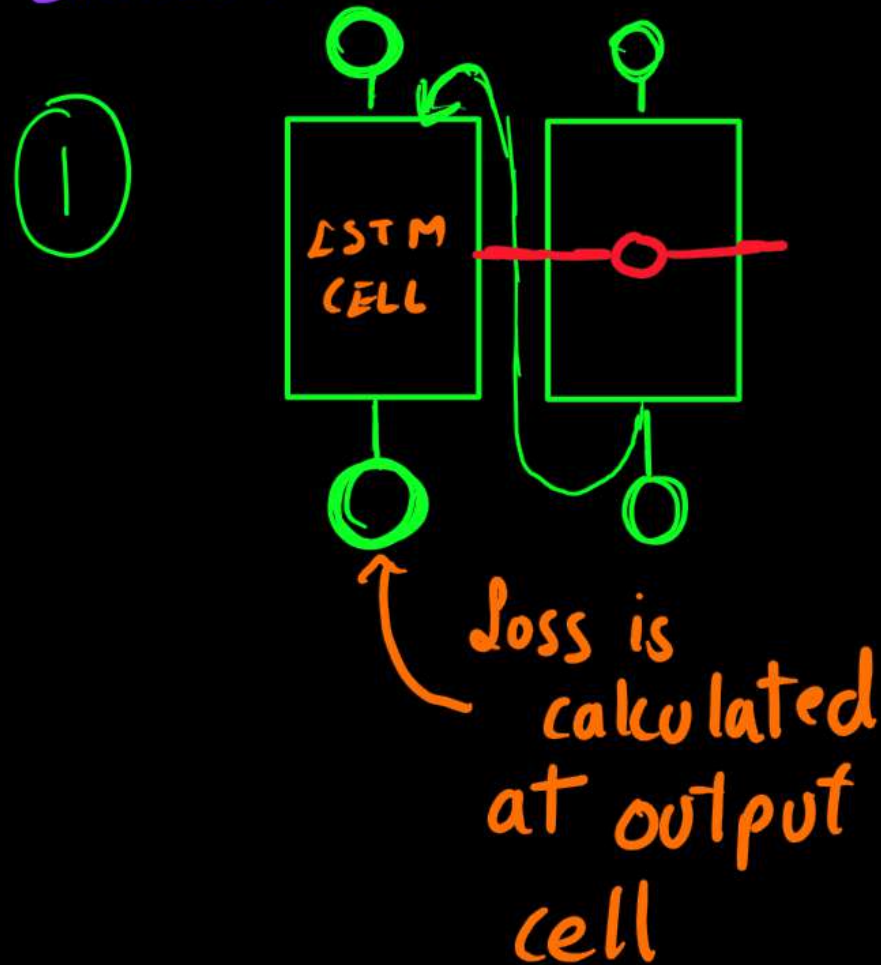 1
LSTM
CELL
Loss is
calculated
at output
cell